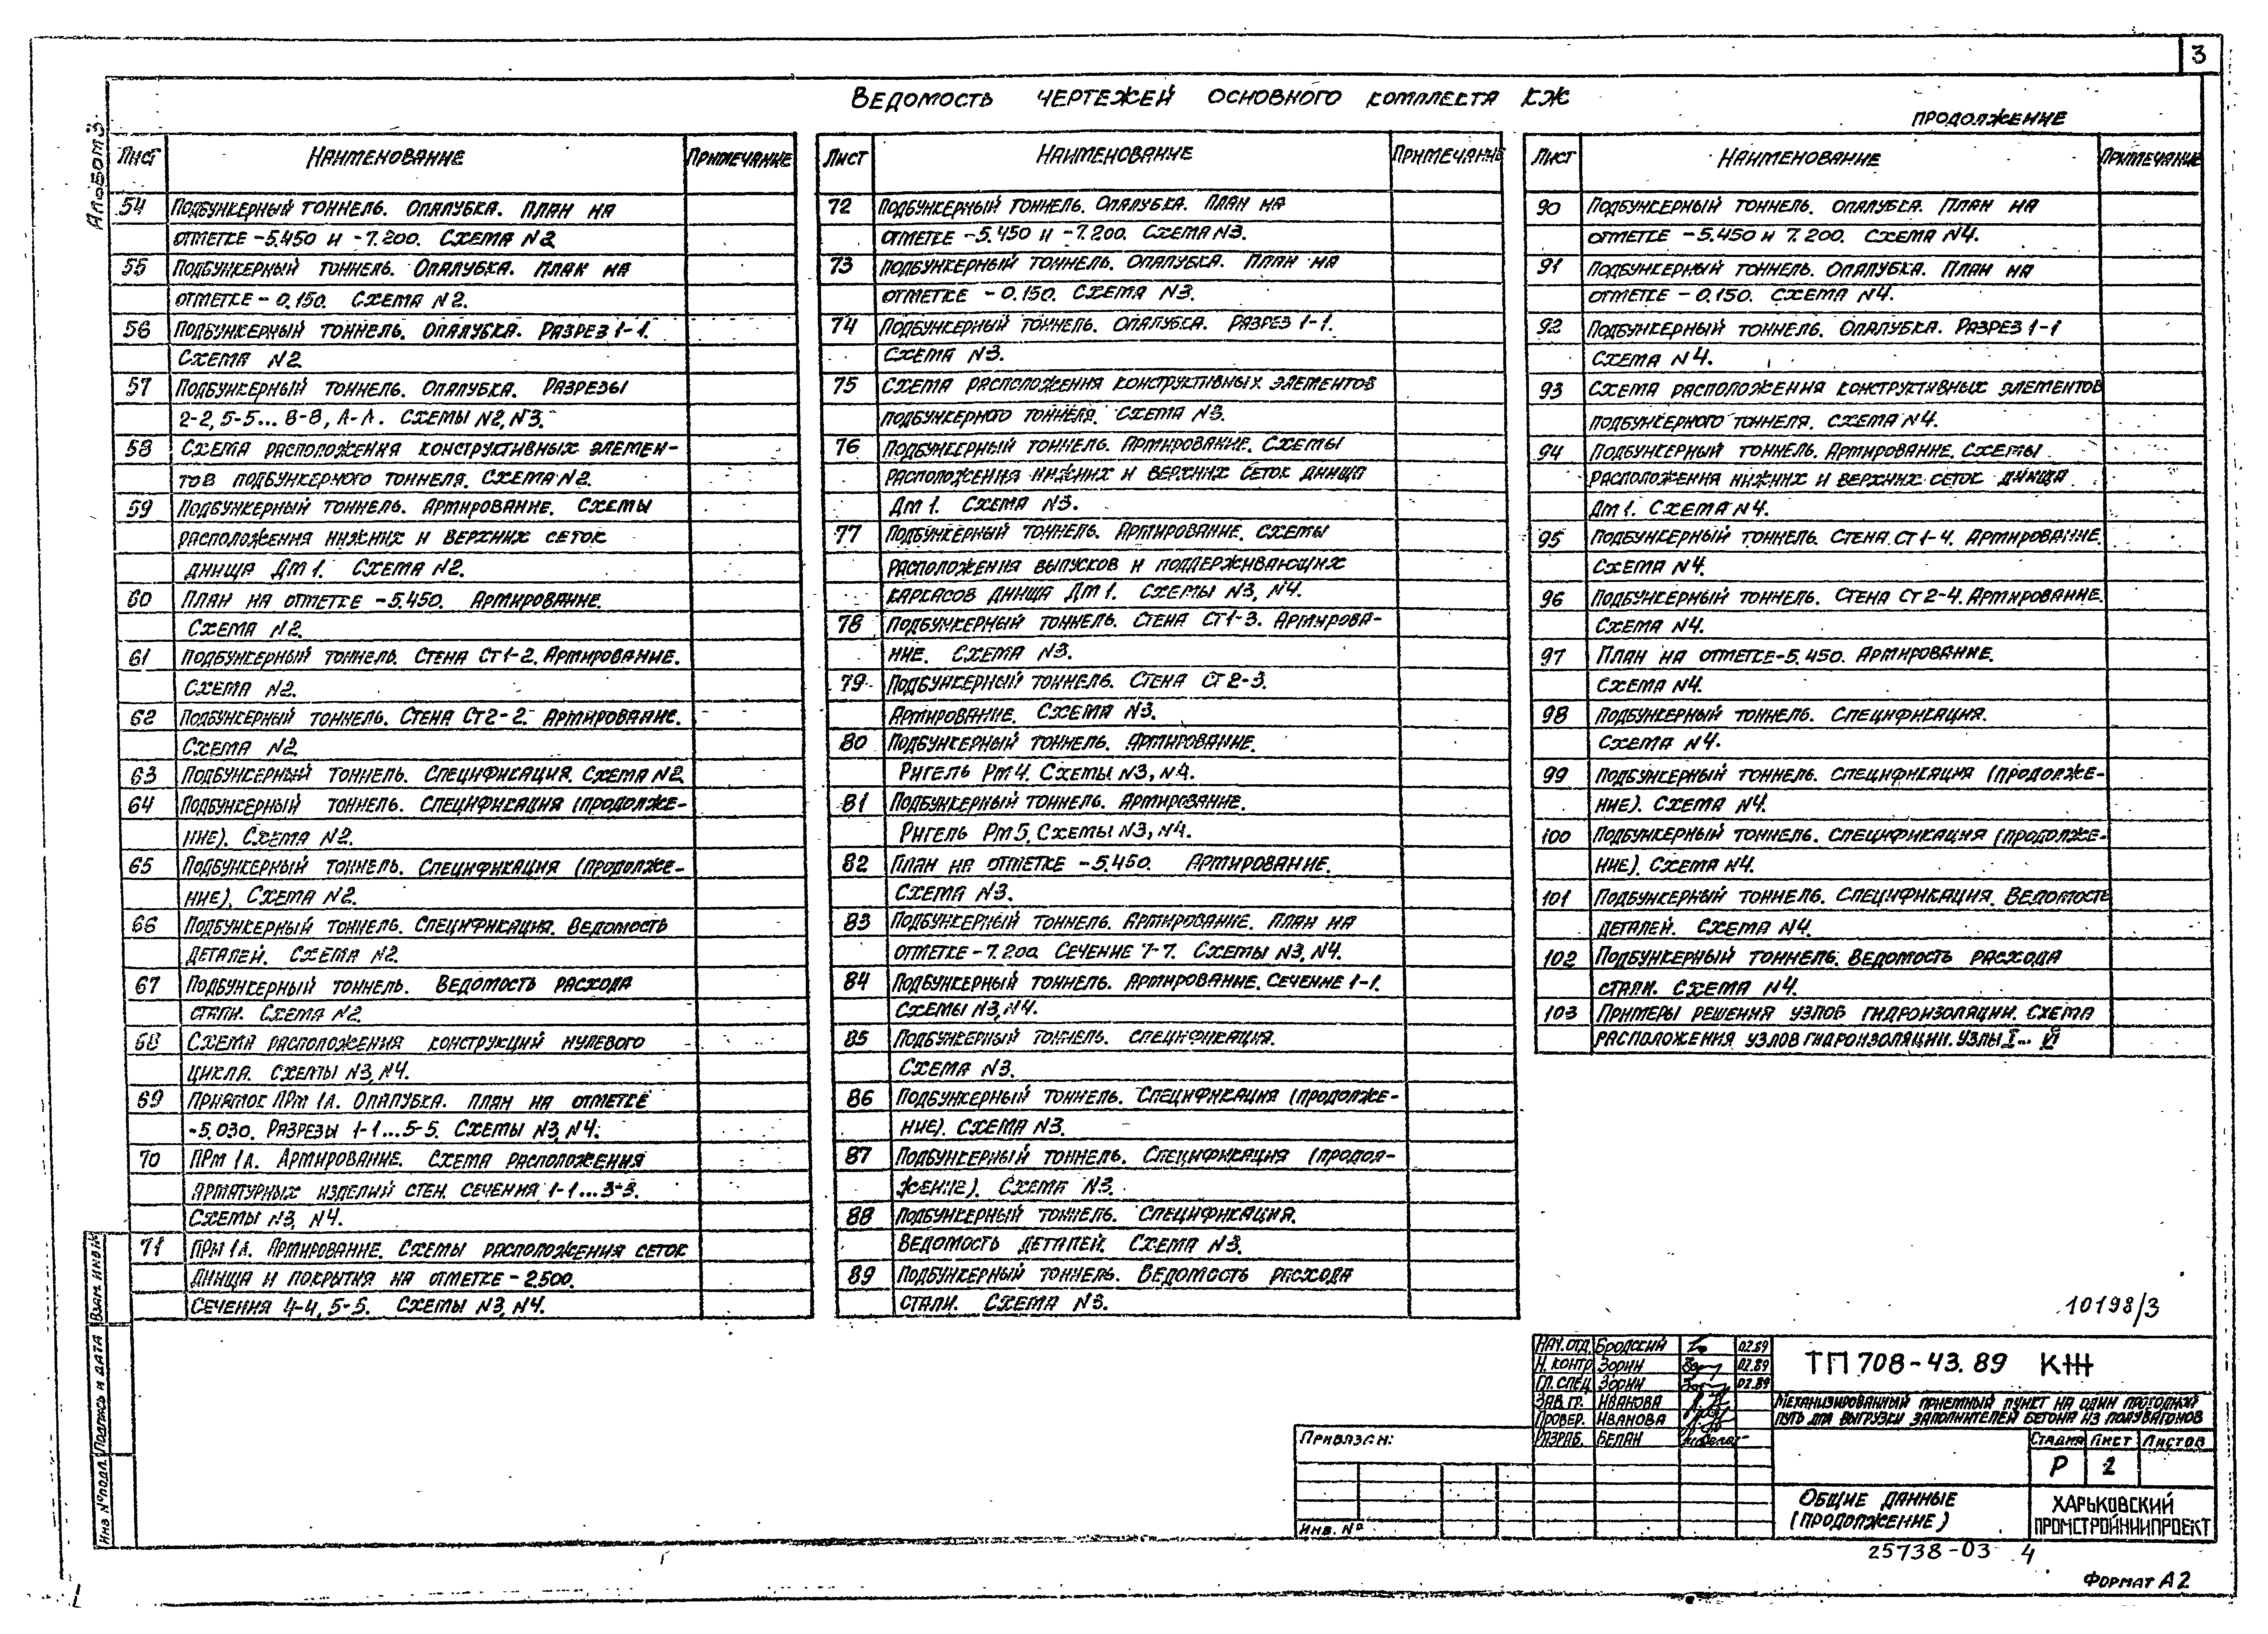 3
Альбом 3
Ведомость чертежей основного комплекта КЖ
продолжение
Лист Наименование Примечание
54 Подбункерный тоннель. Опалубка. План на
отметке -5.450 и -7.200. Схема N2
55 Подбункерный тоннель. Опалубка. План на
отметке - 0.150. Схема N2.
56 Подбункерный тоннель. Опалубка. Разрез 1-1.
Схема N2
57 Подбункерный тоннель. Опалубка. Разрезы
2-2, 5-5... 8-8, А-А. Схемы N2, N3.
58 Схема расположения конструктивных элемен-
тов подбункерного тоннеля. Схема N2.
59 Подбункерный тоннель. Армирование. Схемы
расположения нижних и верхних сеток
днища Дм1. Схема N2.
60 План на отметке -5.450. Армирование.
Схема N2.
61 Подбункерный тоннель. Стена Ст1-2. Армирование.
Схема N2.
62 Подбункерный тоннель. Стена Ст2-2. Армирование.
Схема N2
63 Подбункерный тоннель. Спецификация. Схема N2
64 Подбункерный тоннель. Спецификация (продолже-
ние). Схема N2.
65 Подбункерный тоннель. Спецификация (продолже-
ние). Схема N2.
66 Подбункерный тоннель. Спецификация. Ведомость
деталей. Схема N2.
67 Подбункерный тоннель. Ведомость расхода
стали. Схема N2.
68 Схема расположения конструкций нулевого
цикла. Схемы N3, N4.
69 Приямок ПРм 1А. Опалубка. план на отметке
-5.030. Разрезы 1-1...5-5. Схемы N3, N4.
70 ПРм 1А. Армирование. Схема расположения
арматурных изделий стен. Сечения 1-1...3-3.
Схемы N3, N4.
71 ПРм 1А. Армирование. Схемы расположения сеток
днища и покрытия на отметке -2500.
Сечения 4-4, 5-5. Схемы N3, N4.
Лист Наименование Примечание
72 Подбункерный тоннель. Опалубка. План на
отметке -5.450 и -7.200. Схема N3.
73 Подбункерный тоннель. Опалубка. План на
отметке - 0.150. Схема N3.
74 Подбункерный тоннель. Опалубка. Разрез 1-1.
Схема N3.
75 Схема расположения конструктивных элементов
подбункерного тоннеля. Схема N3.
76 Подбункерный тоннель. Армирование. Схемы
расположения нижних и верхних сеток днища
Дм1. Схема N3.
77 Подбункерный тоннель. Армирование. Схемы
расположения выпусков и поддерживающих
каркасов днища Дм1. Схемы N3, N4.
78 Подбункерный тоннель. Стена Ст1-3. Армирова-
ние. Схема N3.
79 Подбункерный тоннель. Стена Ст2-3.
Армирование. Схема N3.
80 Подбункерный тоннель. Армирование.
Ригель Рм4. Схемы N3, N4.
81 Подбункерный тоннель. Армирование.
Ригель Рм5. Схемы N3, N4.
82 План на отметке -5.450. Армирование.
Схема N3.
83 Подбункерный тоннель. Армирование. План на
отметке -7.200 Сечение 7-7. Схемы N3, N4.
84 Подбункерный тоннель. Армирование. Сечение 1-1.
Схемы N3, N4.
85 Подбункерный тоннель. Спецификация.
Схема N3.
86 Подбункерный тоннель. Спецификация (продолже-
ние). Схема N3.
87 Подбункерный тоннель. Спецификация (продол-
жение). Схема N3.
88 Подбункерный тоннель. Спецификация.
Ведомость деталей. Схема N3.
89 Подбункерный тоннель. Ведомость расхода
стали. Схема N3.
Лист Наименование Примечание
90 Подбункерный тоннель. Опалубка. План на
отметке -5.450 и 7.200. Схема N4.
91 Подбункерный тоннель. Опалубка. План на
отметке - 0.150. Схема N4.
92 Подбункерный тоннель. Опалубка. Разрез 1-1
Схема N4.
93 Схема расположения конструктивных элементов
подбункерного тоннеля. Схема N4.
94 Подбункерный тоннель. Армирование. Схемы
расположения нижних и верхних сеток днища
Дм1. Схема N4.
95 Подбункерный тоннель. Стена Ст1-4. Армирование.
Схема N4.
96 Подбункерный тоннель. Стена Ст2-4. Армирование.
Схема N4.
97 План на отметке-5.450. Армирование.
Схема N4.
98 Подбункерный тоннель. Спецификация.
Схема N4.
99 Подбункерный тоннель. Спецификация (продолже-
ние). Схема N4.
100 Подбункерный тоннель. Спецификация (продолже-
ние). Схема N4.
101 Подбункерный тоннель. Спецификация. Ведомость
деталей. Схема N4.
102 Подбункерный тоннель. Ведомость расхода
стали. Схема N4.
103 Примеры решения узлов гидроизоляции. Схема
расположения узлов гидроизоляции. Узлы I... VI
10198/3
Нач. отд. Бродский 02.89
Н. контр. Зорин 02.89
Гл. спец. Зорин 02.89
Зав. гр. Иванова
Провер. Иванова
Разраб. Белан
ТП 708-43.89 КЖ
Механизированный приемный пункт на один проходной
путь для выгрузки заполнителей бетона из полувагонов
Стадия Лист Листов
Р 2
Общие данные
(продолжение)
Харьковский
Промстройниипроект
Привязан:
Инв. №
Взам. инв №
Подпись и дата
Инв № подл.
25738-03 4
Формат А2